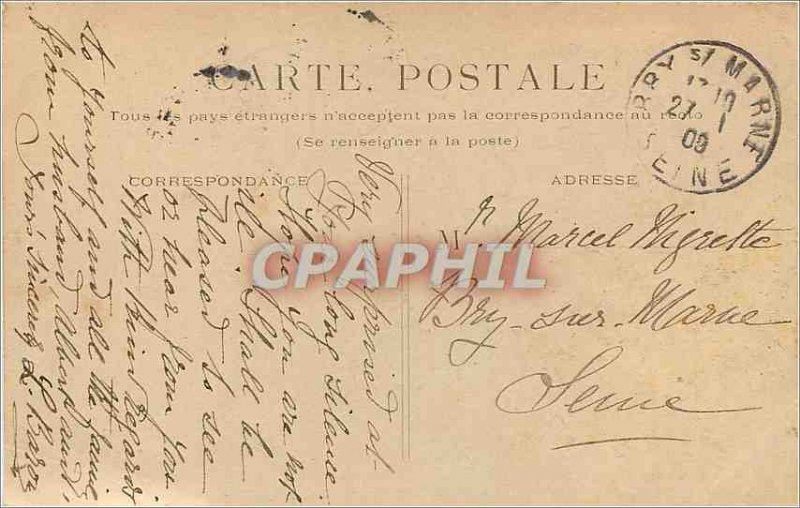 CARTE POSTALE
Tous les pays étrangers n'acceptent pas la correspondance au recto
(Se renseigner à la poste)
CORRESPONDANCE
ADRESSE
BRY S/ MARNE
27
SEINE
Mr. Marcel Nigrette
Bry-sur-Marne
Seine
Very surprised at
long silence
Hope you are not
ill. Shall be
pleased to see
or hear from you
With kind regards
to yourself and all the
from husband Albert and
Yours sincerely L.
CPAPHIL